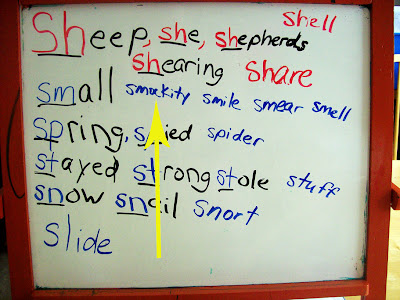 shell
SHeep, she, shepherds
shearing share
small smile smear smell
spring, spied spider
stayed strong stole stuff
snow snail snort
slide